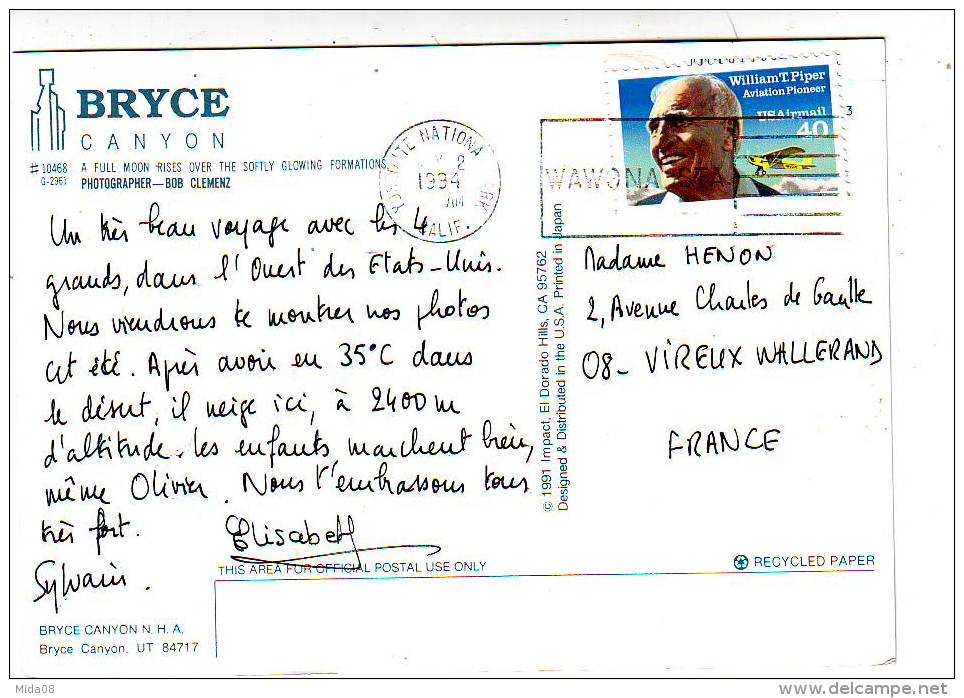 BRYCE
CANYON
#10468 A FULL MOON RISES OVER THE SOFTLY GLOWING FORMATIONS
G-2961 PHOTOGRAPHER—BOB CLEMENZ
William T. Piper
Aviation Pioneer
USAirmail
40
3
NATIONA
2
1994
AM
CALIF.
WAWONA
Un très beau voyage avec les 4
grands, dans l'Ouest des Etats-Unis.
Nous viendrons te montrer nos photos
cet été. Après avoir eu 35°C dans
le désert, il neige ici, à 2400m
d'altitude. Les enfants marchent bien,
même Olivier. Nous t'embrassons tous
très fort. Elisabeth
Sylvain.
© 1991 Impact, El Dorado Hills, CA 95762
Designed & Distributed in the U.S.A. Printed in Japan
Madame HENON
2, Avenue Charles de Gaulle
08_ VIREUX WALLERAND
FRANCE
THIS AREA FOR OFFICIAL POSTAL USE ONLY
RECYCLED PAPER
BRYCE CANYON N. H. A.
Bryce Canyon, UT 84717
Mida08
delcampe.net